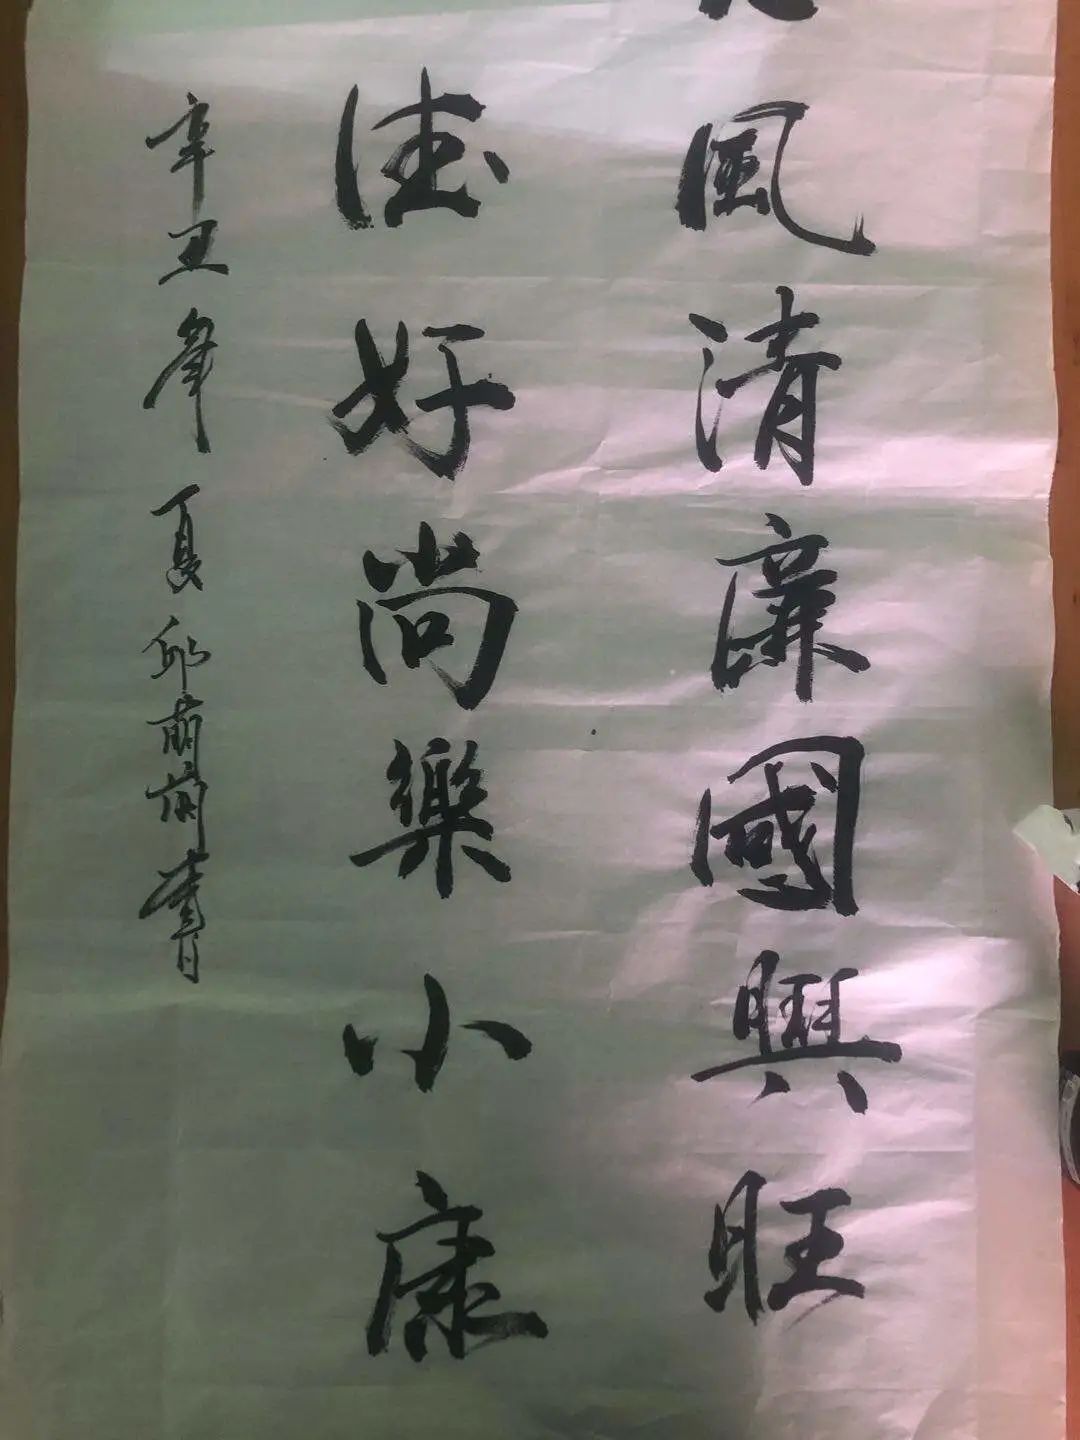 風清廉國興旺
德好尚樂小康
辛丑年夏邱萌萌書